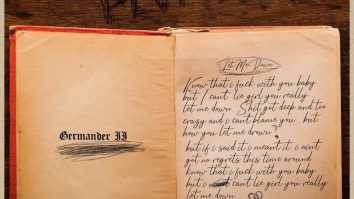 Germander II
Let Me Down
Know that i fuck with you baby
but I cant lie girl you really
let me down. Shit got deep and too
crazy and i cant blame you but
how you let me drown?
but if i said it i meant it i aint
got no regrets this time around
know that i fuck with you baby
but i cant lie girl you really
let me down